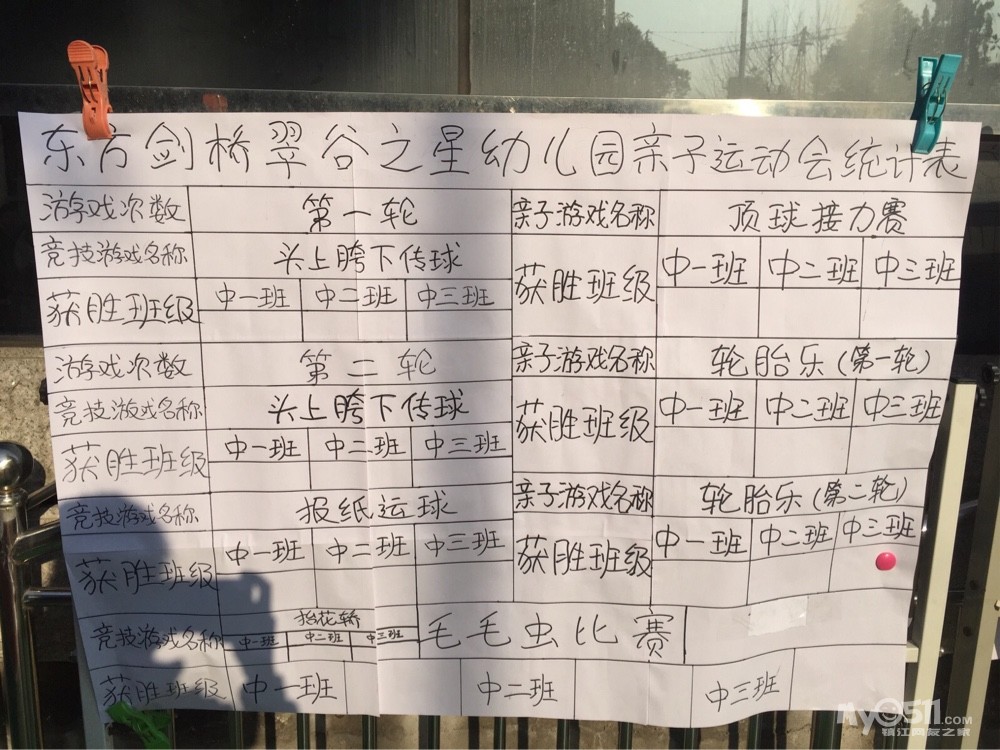 东方剑桥翠谷之星幼儿园亲子运动会统计表
游戏次数 第一轮
竞技游戏名称 头上胯下传球
获胜班级 中一班 中二班 中三班
游戏次数 第二轮
竞技游戏名称 头上胯下传球
获胜班级 中一班 中二班 中三班
竞技游戏名称 报纸运球
获胜班级 中一班 中二班 中三班
亲子游戏名称 顶球接力赛
获胜班级 中一班 中二班 中三班
亲子游戏名称 轮胎乐(第一轮)
获胜班级 中一班 中二班 中三班
亲子游戏名称 轮胎乐(第二轮)
获胜班级 中一班 中二班 中三班
竞技游戏名称 抬花轿 毛毛虫比赛
中一班 中二班 中三班
获胜班级 中一班 中二班 中三班
My0511.com
镇江网友之家